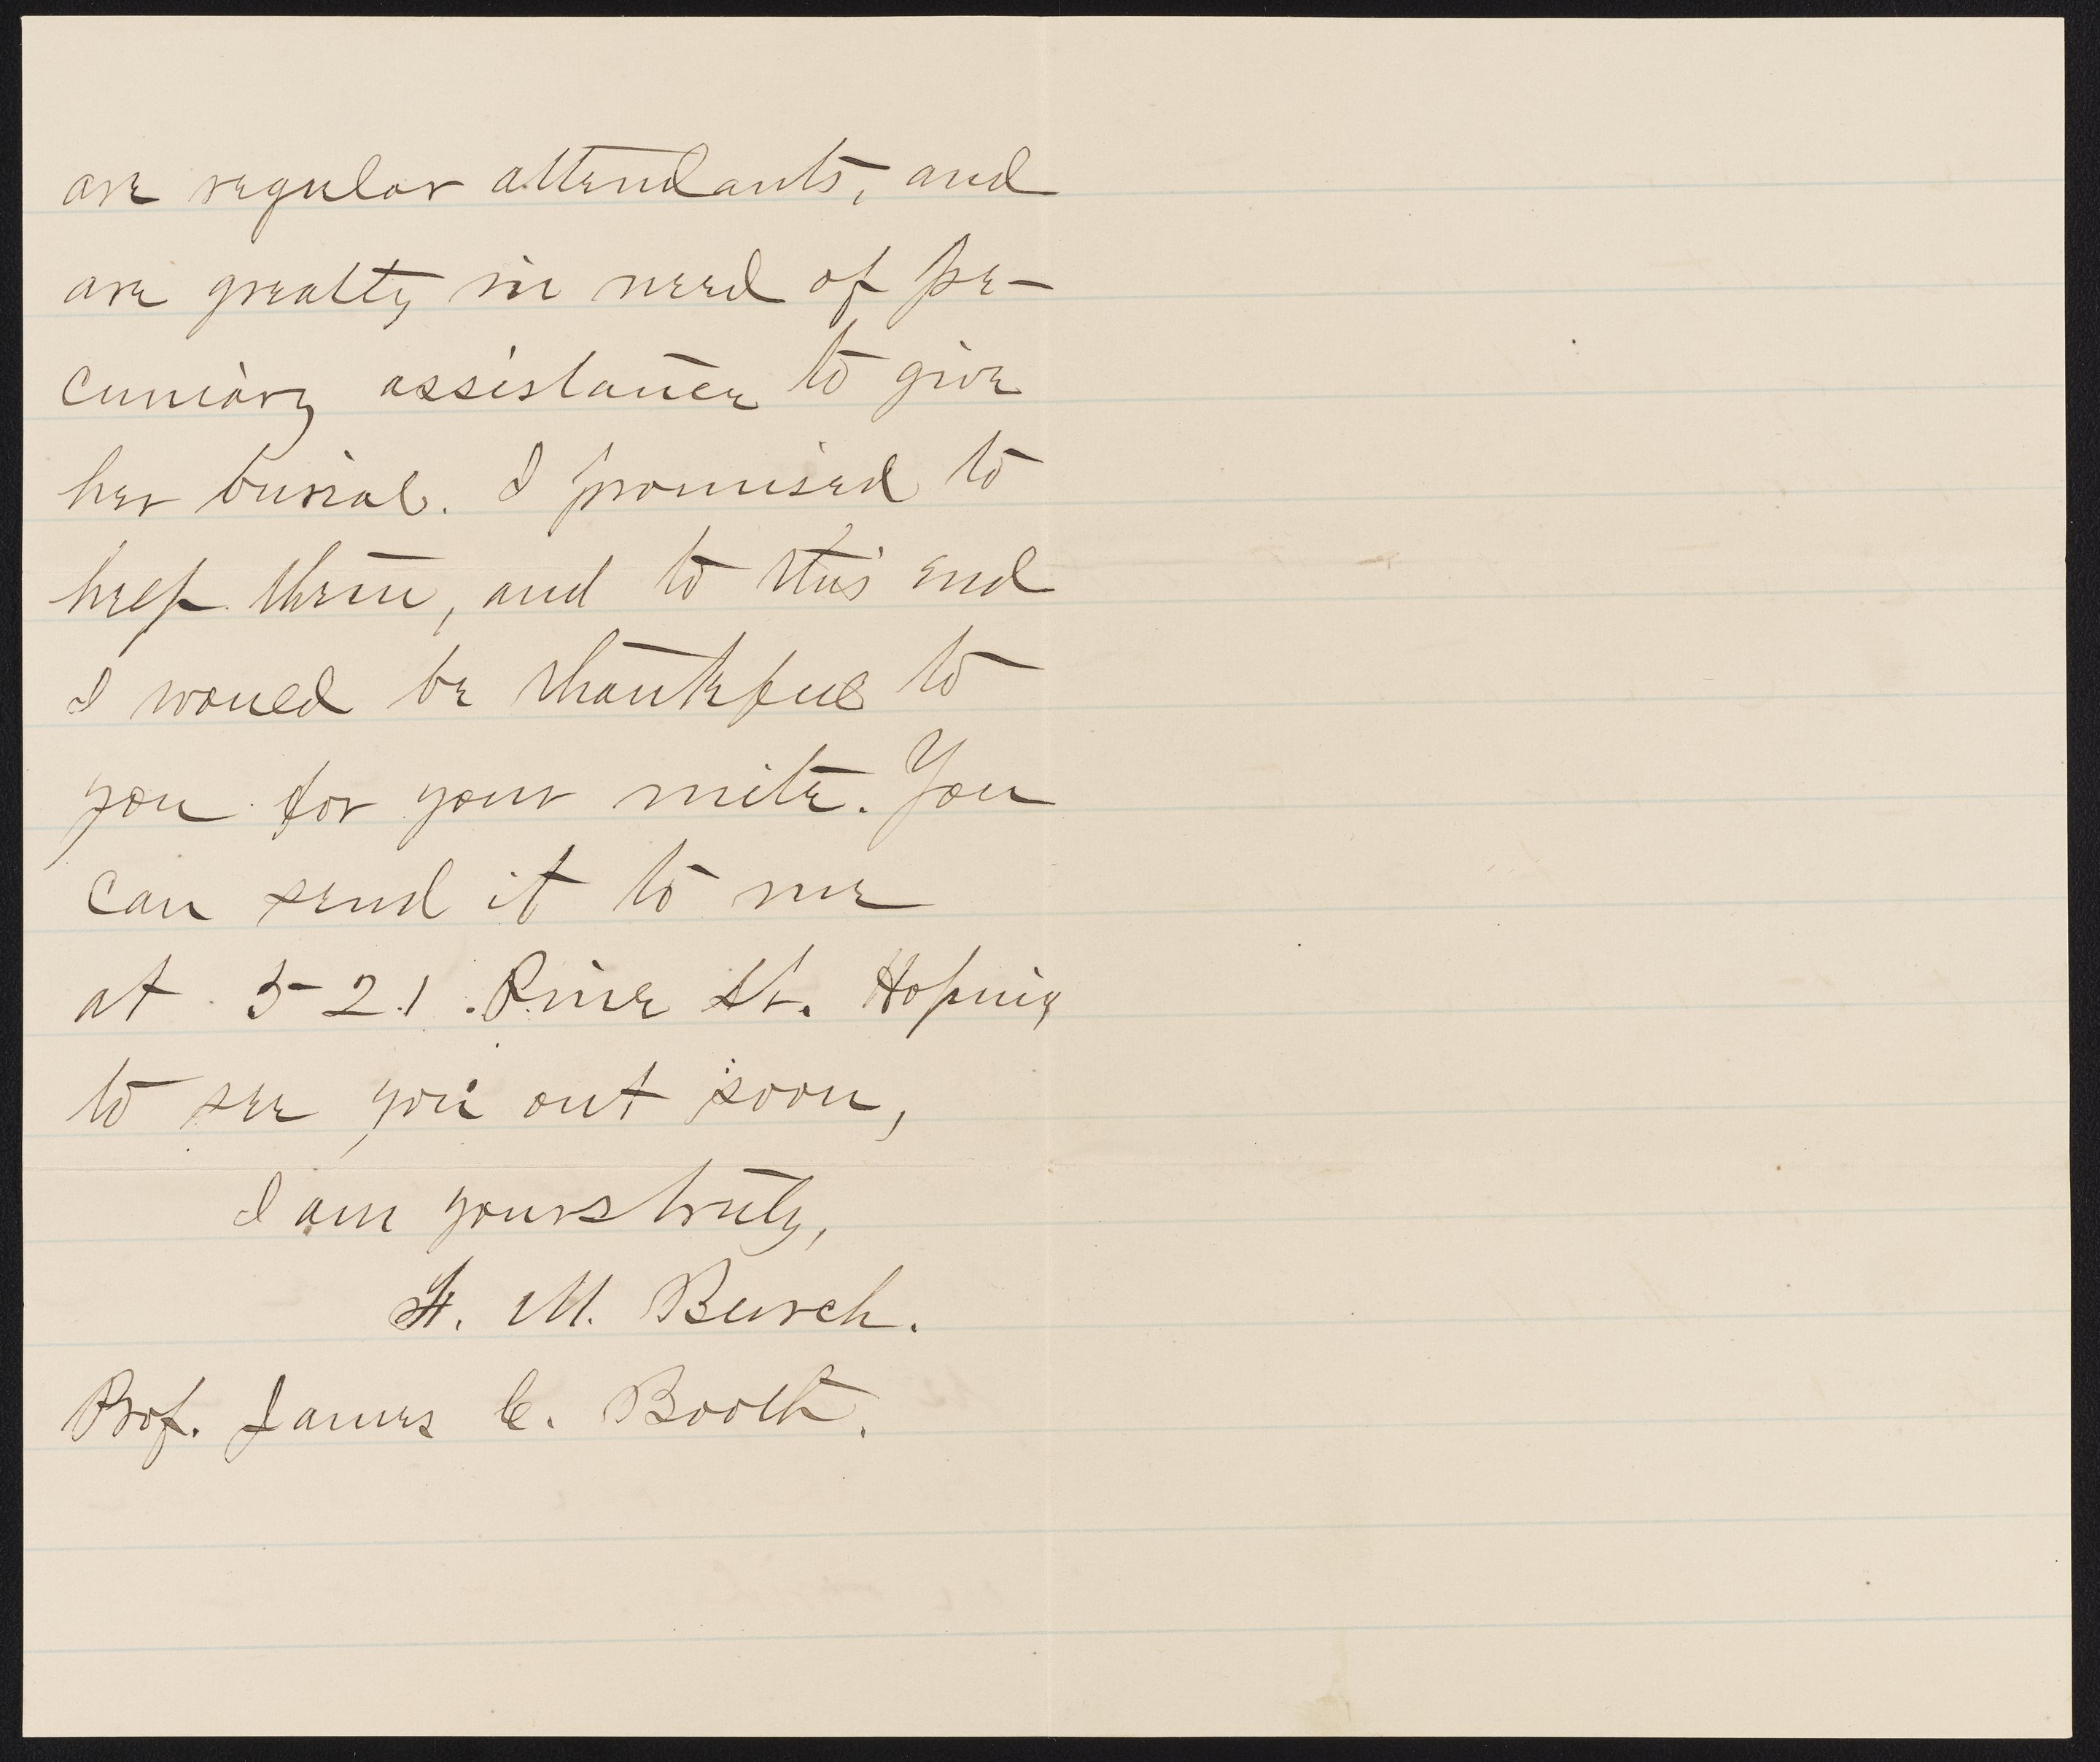 are regular attendants, and
are greatly in need of pe-
cuniary assistance to give
her burial. I promised to
help them, and to this end
I would be thankful to
you for your mite. You
can send it to me
at 521 Pine St. Hoping
to see you out soon,
I am yours truly,
F. M. Burch.
Prof. James C. Booth.